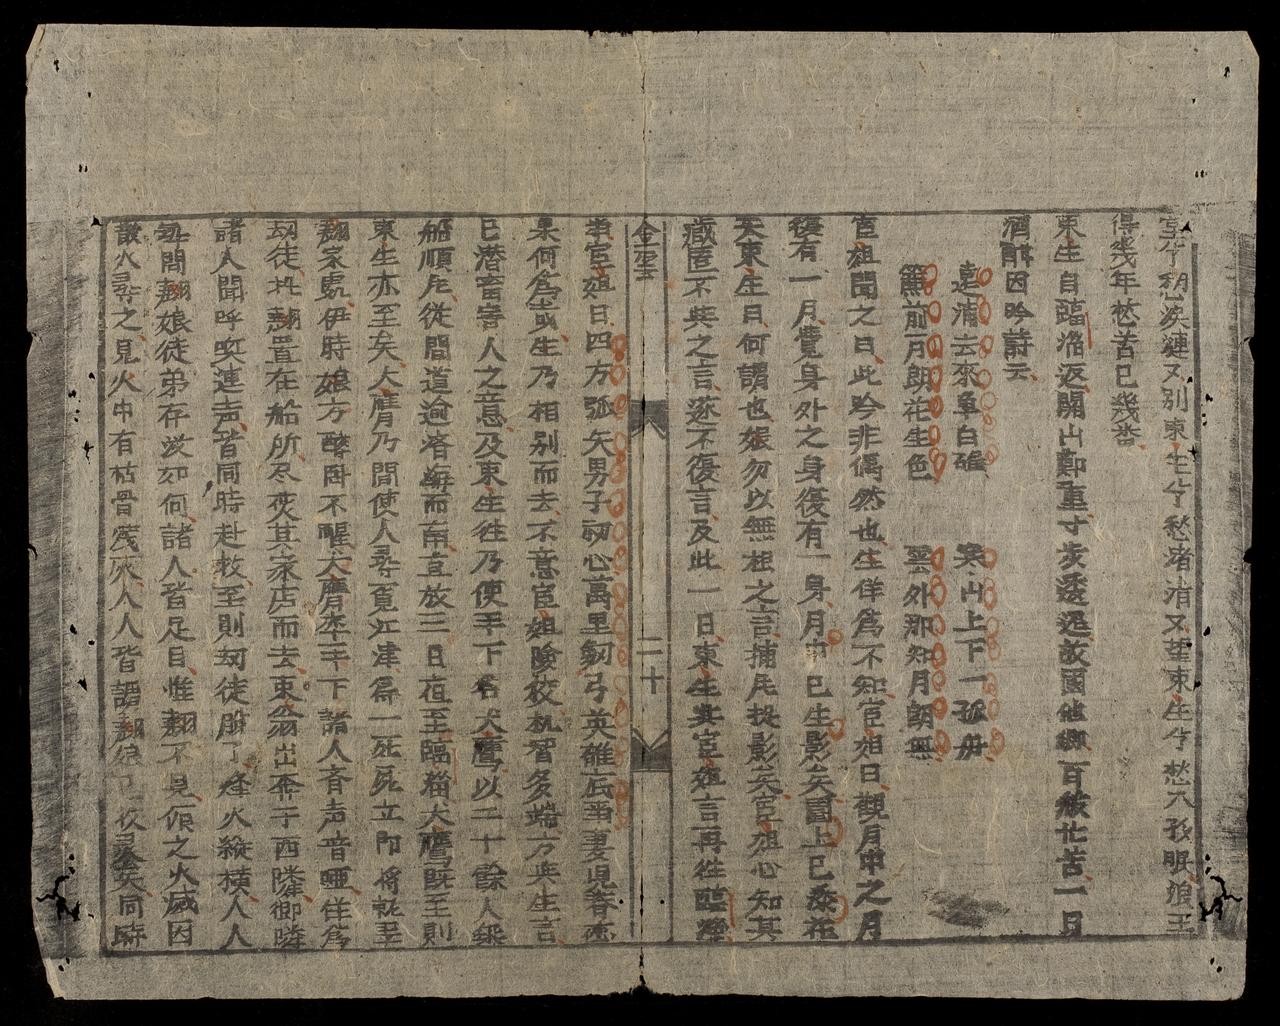 堂兮愁淚漣又別東生兮愁渚消又望東生兮愁六 眠浪王
得幾年愁苦已幾番
東生自臨淄返開山鄭重寸步透迤故國他鄉百般忙苦一日
酒酣因吟詩云
遠浦去來皐白礁 寒山上下一孤舟
簾前月朗花生色 雲外那知月朗無
宦姐聞之曰此吟非偶然也生佯爲不知宦姐曰觀月中之月
復有一月覺身外之身復有一身月中已生影矣園上已添花
矣東生曰何謂也娘勿以無根之言捕風捉影矣宦姐心知其
藏匿不與之言遂不復言及此一日東生與宦姐言再徃臨淄
金雲
二十
辛宦姐曰四方弧矢男子初心萬里弓英雄底事妻見春恋
果何爲哉生乃相別而去不意宦姐陰狡机智多端方與生言
已潛畜害人之意及東生徃乃使手下名犬鷹以二十餘人乘
船順風從間道逾濟海而南直放三日夜至臨淄犬鷹既至則
東生亦至矣犬鷹乃間使人尋覓江津得一死屍立即將就至
翹家處伊時娘方醉卧不醒犬鷹率手下諸人吞声音啞住爲
刼徒扛翹置在船所尽焚其家店而去東翁出奔于西隣御隣
諸人聞呼喚連声皆同時赴救至則刼徒脱了烽火縱横人人
每問翹娘徒弟存没如何諸人皆足目惟翹不見候之火威因
散火尋之見火中有枯骨殘灰人人皆謂翹娘 矣同時